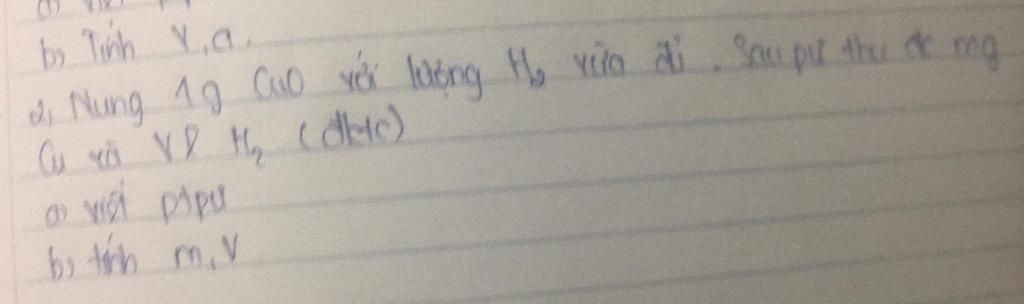 b) Tính V, a.
2, Nung 1g CuO với lượng H₂ vừa đủ. Sau pư thu đc mg
Cu và Vl H₂ (đktc)
a) viết ptpư
b) tính m, V